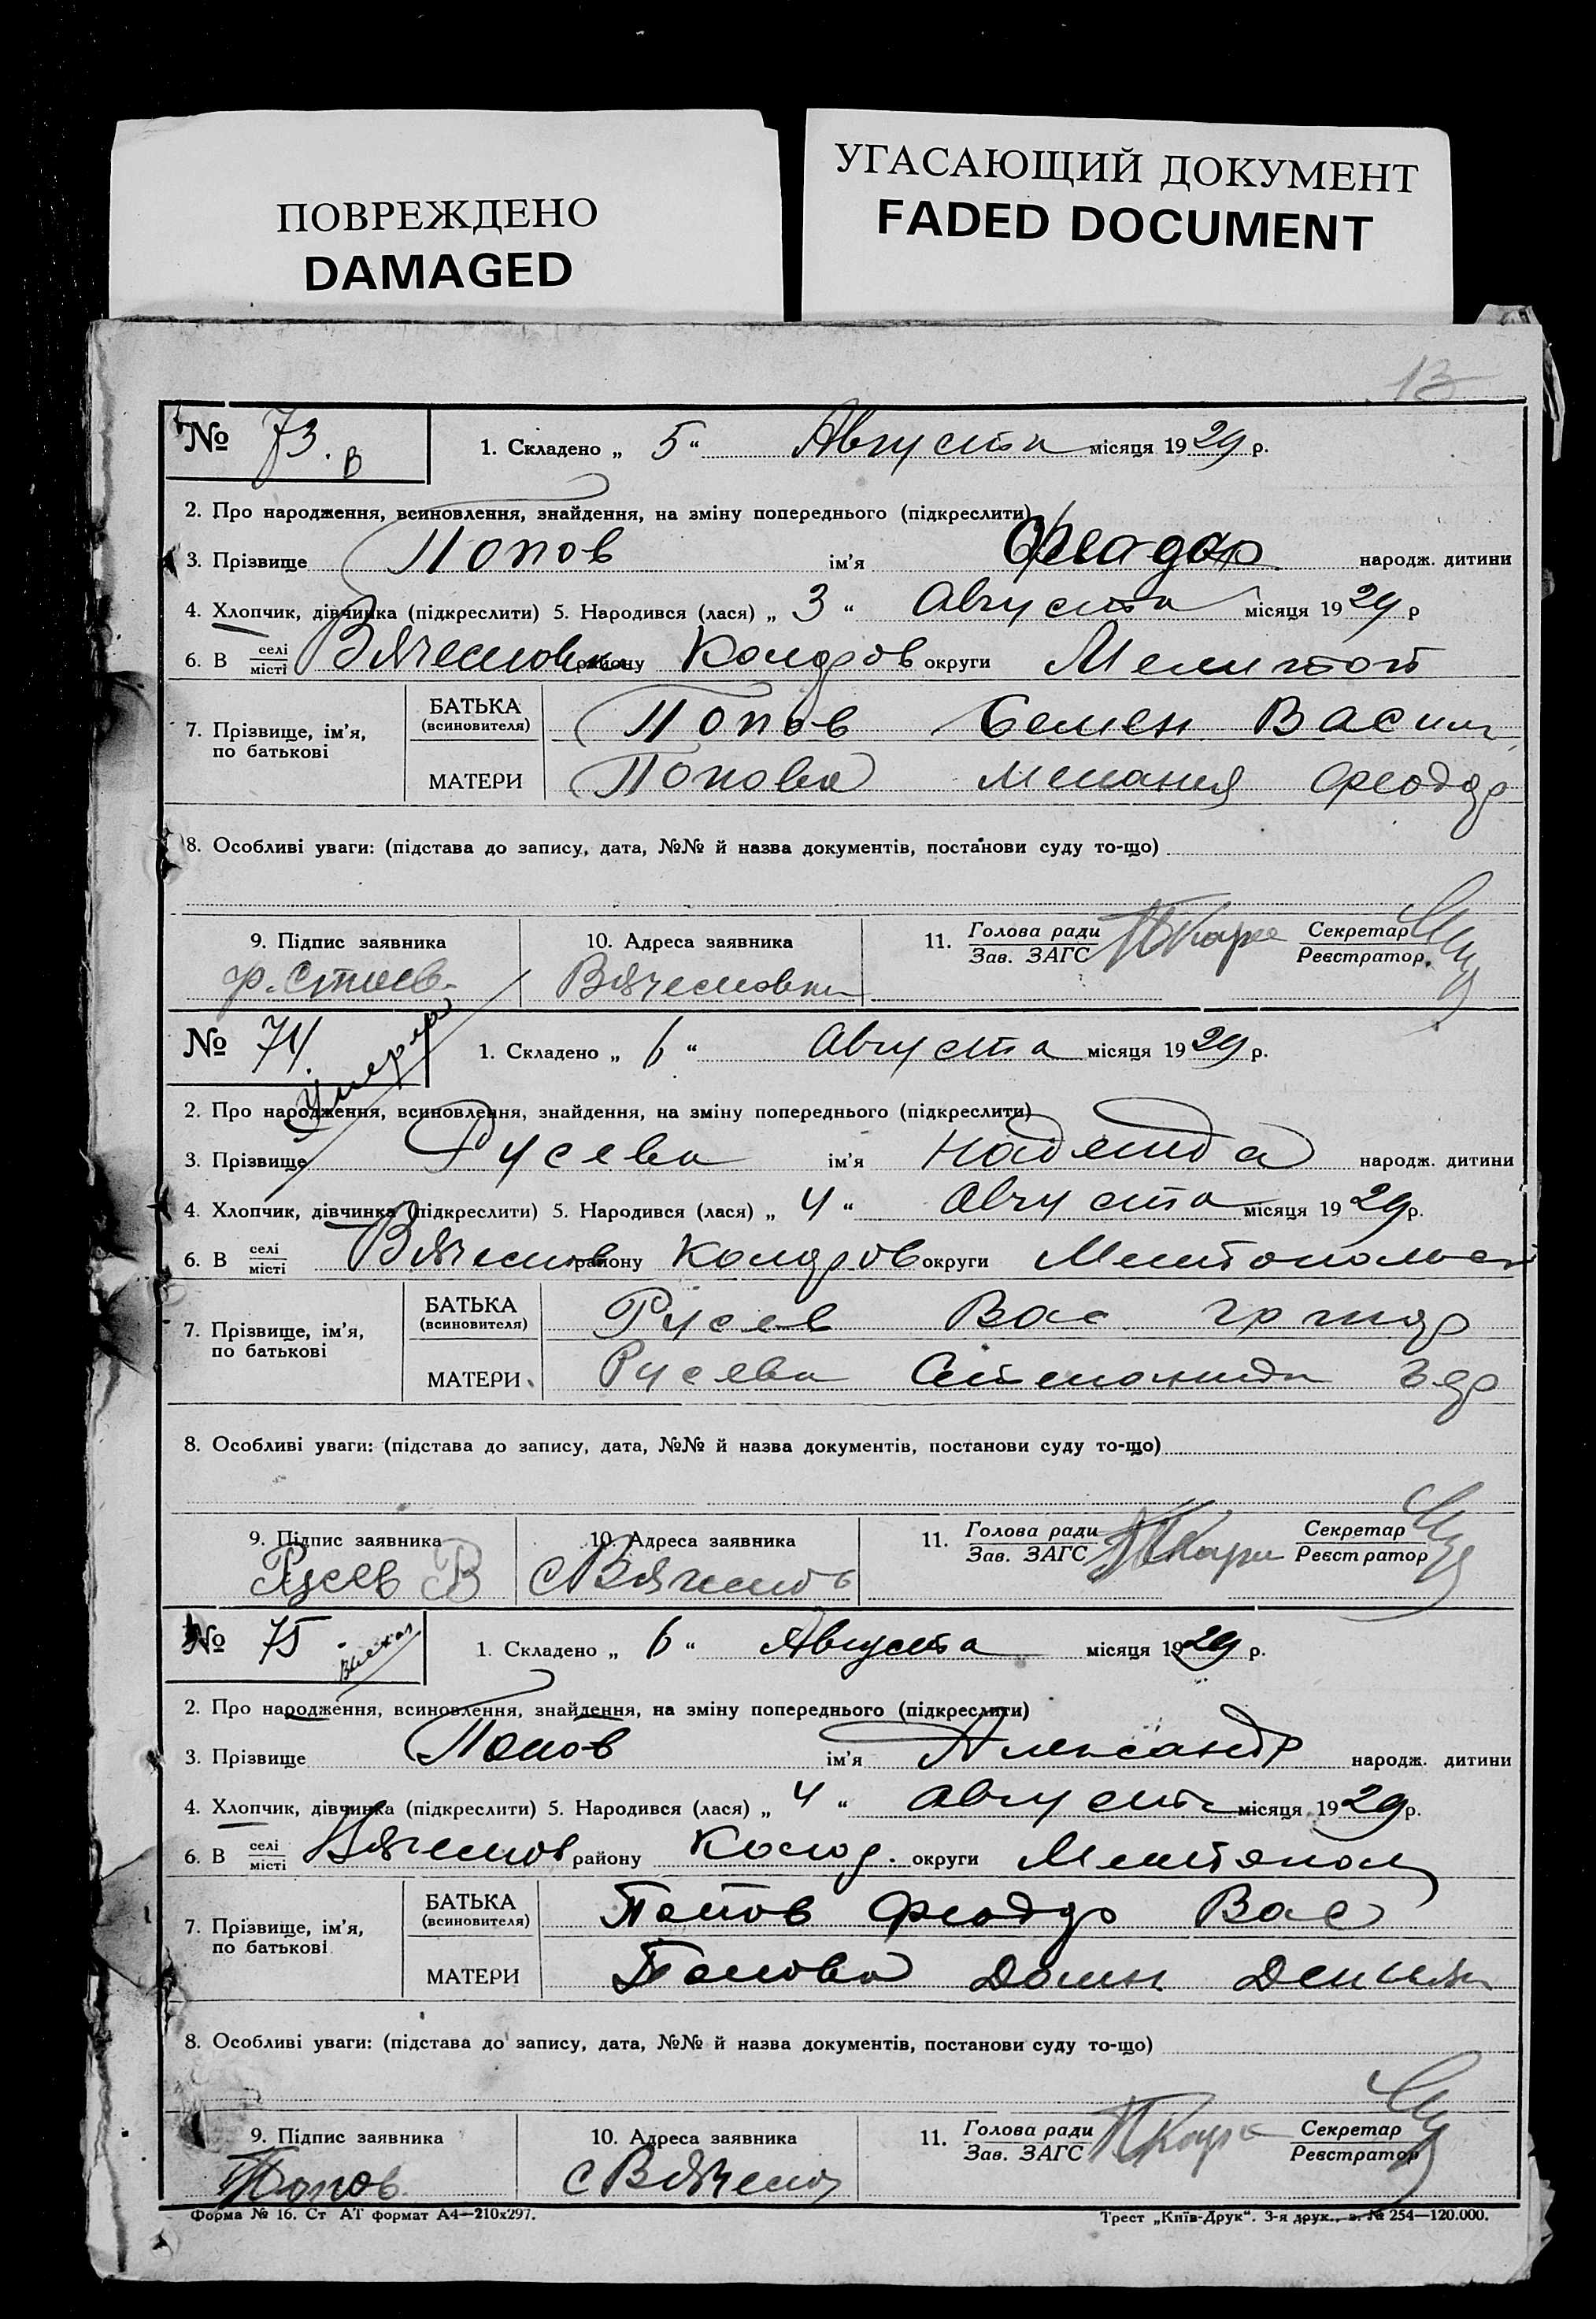 ПОВРЕЖДЕНО
DAMAGED
УГАСАЮЩИЙ ДОКУМЕНТ
FADED DOCUMENT
13
№ 73. в 1. Складено „ 5 “ Августа місяця 1929 р.
2. Про народження, всиновлення, знайдення, на зміну попереднього (підкреслити)
3. Прізвище Попов ім'я народж. дитини
4. Хлопчик, дівчинка (підкреслити) 5. Народився (лася) „ 3 “ Августа місяця 1929 р
6. В селі місті Вячесловка району Колдров округи Мелитоп
7. Прізвище, ім'я, по батькові
БАТЬКА (всиновителя) Попов Семен Васил
МАТЕРИ Попова Мелания Феодор
8. Особливі уваги: (підстава до запису, дата, №№ й назва документів, постанови суду то-що)
9. Підпис заявника 10. Адреса заявника 11. Голова ради Зав. ЗАГС Секретар Реєстратор
Вячесловки
№ 74. Умерла 1. Складено „ 6 “ Августа місяця 1929 р.
2. Про народження, всиновлення, знайдення, на зміну попереднього (підкреслити)
3. Прізвище Русева ім'я Надежда народж. дитини
4. Хлопчик, дівчинка (підкреслити) 5. Народився (лася) „ 4 “ Августа місяця 1929 р.
6. В селі місті Вячеслов району Колдров округи
7. Прізвище, ім'я, по батькові
БАТЬКА (всиновителя) Русев Вас
МАТЕРИ Русева Степанида
8. Особливі уваги: (підстава до запису, дата, №№ й назва документів, постанови суду то-що)
9. Підпис заявника 10. Адреса заявника 11. Голова ради Зав. ЗАГС Секретар Реєстратор
Русев В с Вячеслов
№ 75. 1. Складено „ 6 “ Августа місяця 1929 р.
2. Про народження, всиновлення, знайдення, на зміну попереднього (підкреслити)
3. Прізвище Попов ім'я Александр народж. дитини
4. Хлопчик, дівчинка (підкреслити) 5. Народився (лася) „ 4 “ Августа місяця 1929 р.
6. В селі місті Вячеслов району округи Мелитопол
7. Прізвище, ім'я, по батькові
БАТЬКА (всиновителя) Попов Феодор Вас
МАТЕРИ Попова
8. Особливі уваги: (підстава до запису, дата, №№ й назва документів, постанови суду то-що)
9. Підпис заявника 10. Адреса заявника 11. Голова ради Зав. ЗАГС Секретар Реєстратор
Попов. с Вячеслов
Форма № 16. Ст АТ формат А4—210х297. Трест „Київ-Друк“. 3-я друк., з. № 254—120.000.